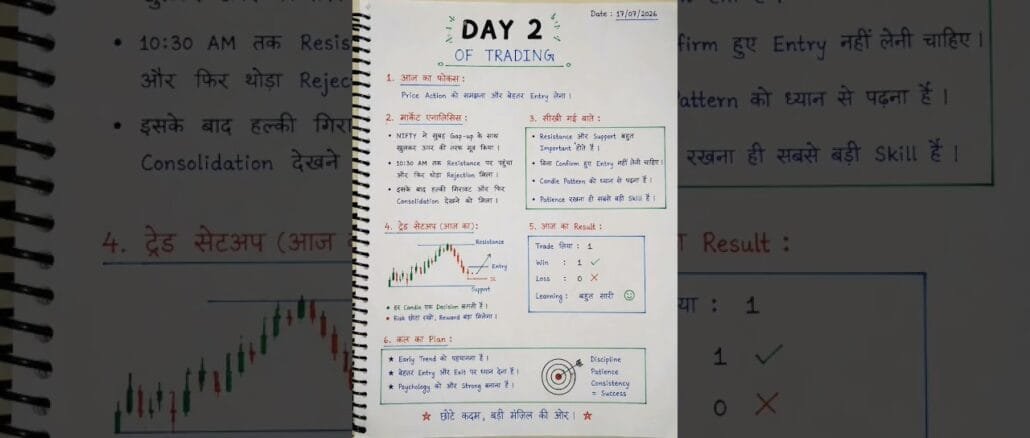 DAY 2
OF TRADING
Date : 17/07/2026
1. आज का फोकस :
Price Action को समझना और बेहतर Entry लेना ।
2. मार्केट एनालिसिस :
• NIFTY ने सुबह Gap-up के साथ
खुलकर ऊपर की तरफ मूव किया ।
• 10:30 AM तक Resistance पर पहुंचा
और फिर थोड़ा Rejection मिला ।
• इसके बाद हल्की गिरावट और फिर
Consolidation देखने को मिला ।
3. सीखी गई बातें :
• Resistance और Support बहुत
Important होते हैं ।
• बिना Confirm हुए Entry नहीं लेनी चाहिए ।
• Candle Pattern को ध्यान से पढ़ना है ।
• Patience रखना ही सबसे बड़ी Skill है ।
4. ट्रेड सेटअप (आज का) :
Resistance
Entry
SL
Support
• हर Candle एक Decision बताती है ।
• Risk छोटा रखो, Reward बड़ा मिलेगा ।
5. आज का Result :
Trade लिया : 1
Win : 1 ✓
Loss : 0 ✗
Learning : बहुत सारी ☺
6. कल का Plan :
★ Early Trend को पहचानना है ।
★ बेहतर Entry और Exit पर ध्यान देना है ।
★ Psychology को और Strong बनाना है ।
Discipline
Patience
Consistency
= Success
☆ छोटे कदम, बड़ी मंज़िल की ओर । ☆
• 10:30 AM तक Resis
और फिर थोड़ा Rejec
• इसके बाद हल्की गिरा
Consolidation देखने
4. ट्रेड सेटअप (आज
firm हुए Entry नहीं लेनी चाहिए ।
Pattern को ध्यान से पढ़ना है ।
रखना ही सबसे बड़ी Skill है ।
Result :
: 1
1 ✓
0 ✗